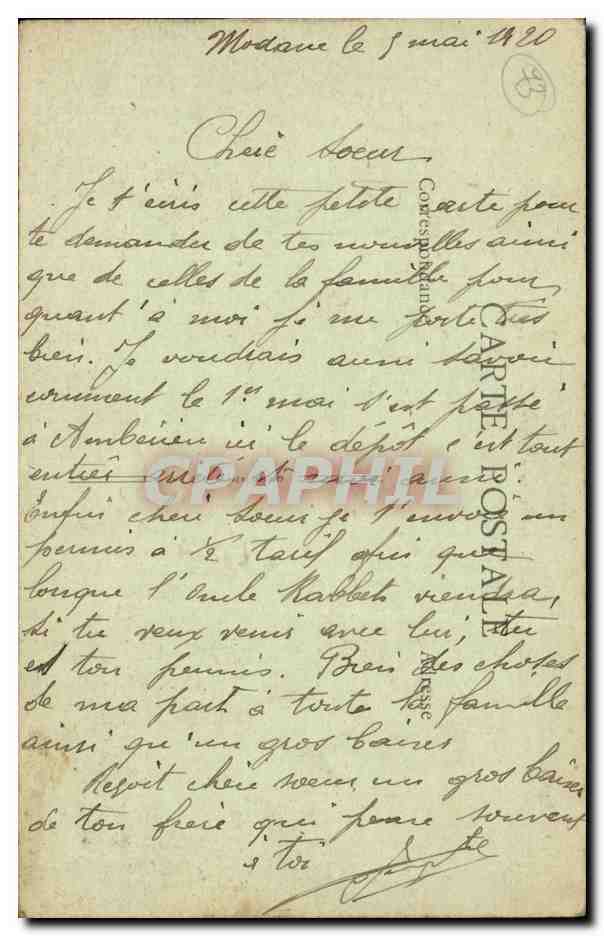 Modane le 5 mai 1920
93
Chère soeur
Je t'écris cette petite carte pour
te demander de tes nouvelles ainsi
que de celles de la famille pour
quant à moi je me porte très
bien. Je voudrais aussi savoir
comment le 1er mai s'est passé
à Ambérieu ici le dépôt s'est tout
entièr aussi.
Enfin chère soeur je t'envoi un
permis à 1/2 tarif afin que
lorsque l'Oncle viendra,
si tu veux venir avec lui, tu
ton permis. Bien des choses
de ma part à toute la famille
ainsi qu'un gros baiser
Reçoit chère soeur un gros baiser
de ton frère qui pense souvent
à toi
CARTE POSTALE
Correspondance
Adresse
CPAPHIL